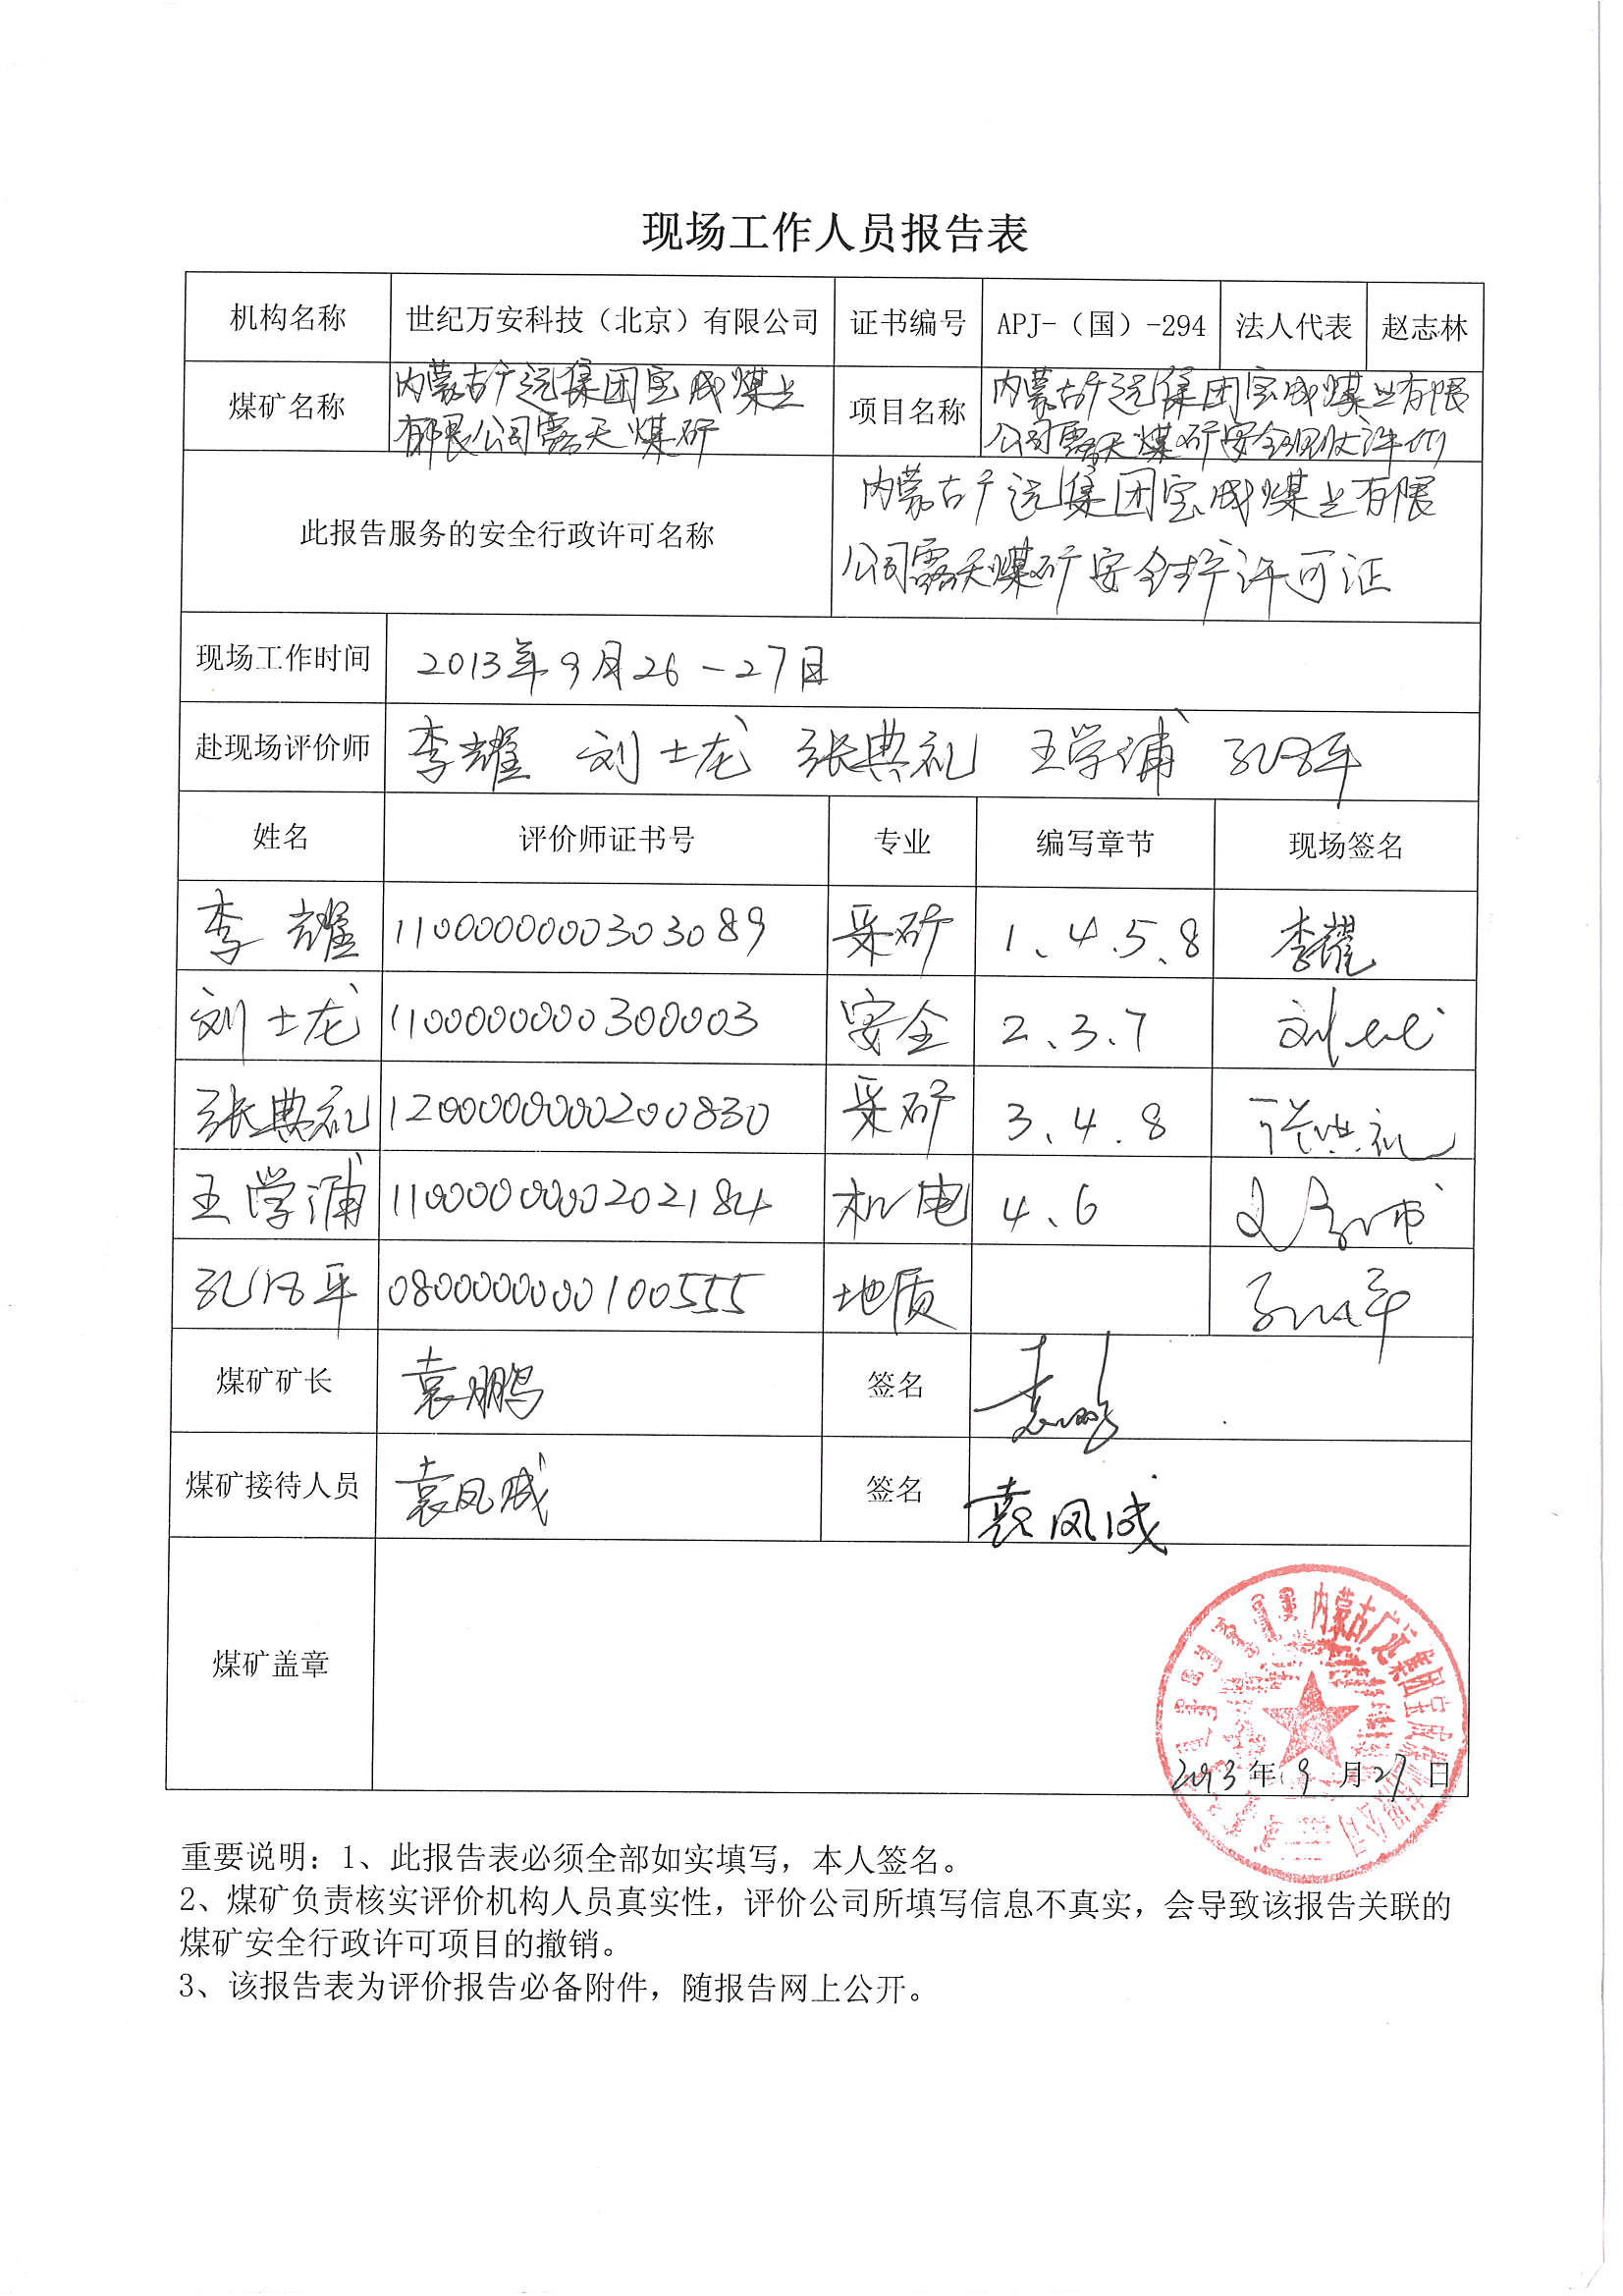 现场工作人员报告表
机构名称 世纪万安科技（北京）有限公司 证书编号 APJ-（国）-294 法人代表 赵志林
煤矿名称 内蒙古广远集团宝成煤业有限公司露天煤矿 项目名称 内蒙古广远集团宝成煤业有限公司露天煤矿安全现状评价
此报告服务的安全行政许可名称 内蒙古广远集团宝成煤业有限
公司露天煤矿安全生产许可证
现场工作时间 2013年9月26-27日
赴现场评价师 李耀 刘士龙 张典礼 王学浦
姓名 评价师证书号 专业 编写章节 现场签名
李耀 1100000000303089 采矿 1、4、5、8 李耀
刘士龙 1100000000300003 安全 2、3、7 刘士龙
张典礼 1200000000200830 采矿 3、4、8 张典礼
王学浦 1100000000202184 机电 4、6 王学浦
0800000000100555 地质
煤矿矿长 袁鹏 签名 袁鹏
煤矿接待人员 袁凤成 签名 袁凤成
煤矿盖章
内蒙古广远集团宝成煤业有限公司
2013年9月27日
重要说明：1、此报告表必须全部如实填写，本人签名。
2、煤矿负责核实评价机构人员真实性，评价公司所填写信息不真实，会导致该报告关联的
煤矿安全行政许可项目的撤销。
3、该报告表为评价报告必备附件，随报告网上公开。